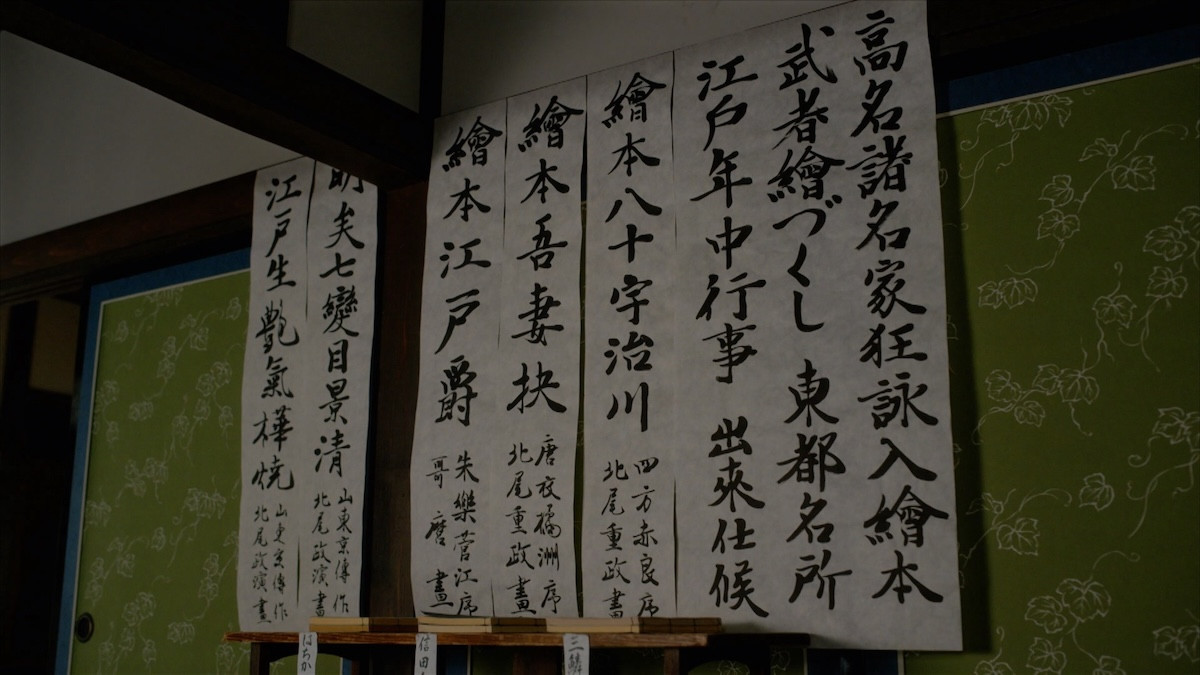 高名諸名家狂詠入繪本
武者繪づくし 東都名所
江戸年中行事 出來仕候
繪本八十宇治川
四方赤良序
北尾重政畫
繪本吾妻抉
唐衣橘洲序
北尾重政畫
繪本江戸爵
朱樂菅江序
哥麿 畫
明矣七變目景清
山東京傳作
北尾政演畫
江戸生艶氣樺焼
山東京傳作
北尾政演畫
はちか
信田
三鱗